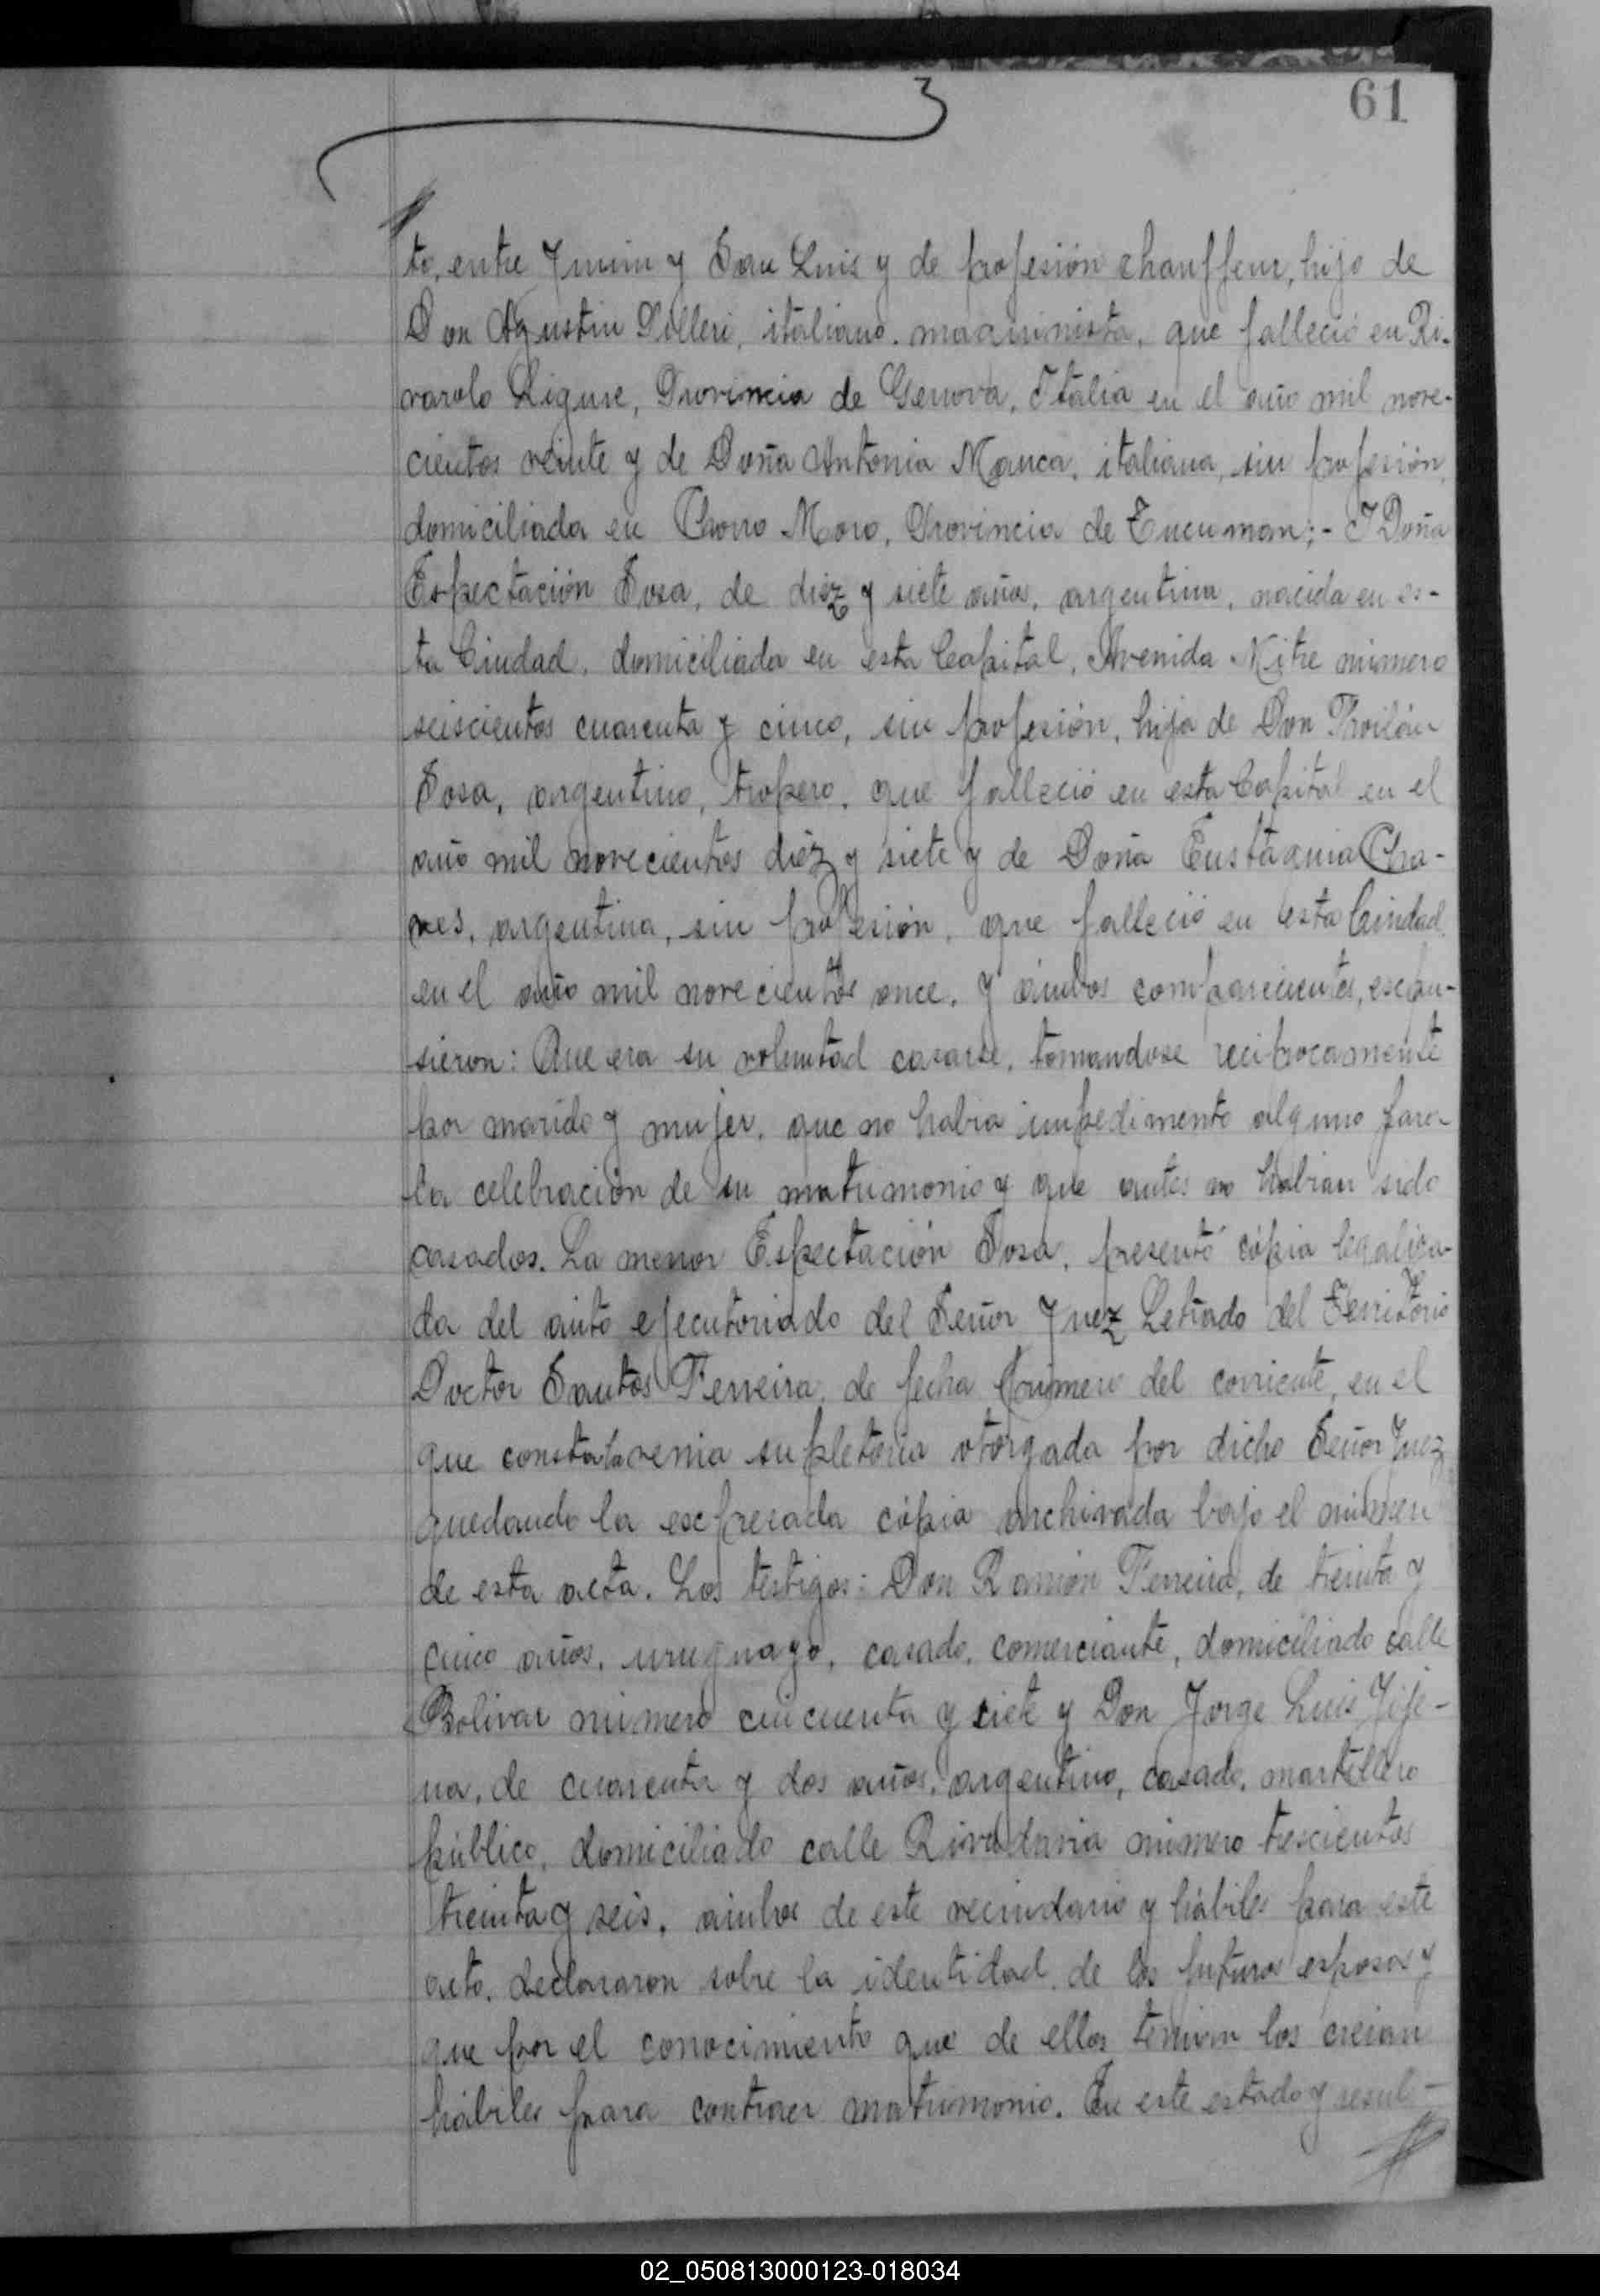 61
to, entre Junin y San Luis y de profesión chauffeur, hijo de
Don Agustin Silleri, italiano, maquinista, que falleció en Ri-
varolo Ligure, Provincia de Genova, Italia en el año mil nove-
cientos veinte y de Doña Antonia Manca, italiana, sin profesión,
domiciliada en Moro, Provincia de Tucuman;- I Doña
Espectación Sosa, de diéz y siete años, argentina, nacida en es-
ta Ciudad, domiciliada en esta Capital, Avenida Mitre número
seiscientos cuarenta y cinco, sin profesión, hija de Don Froilán
Sosa, argentino, tropero, que falleció en esta Capital en el
año mil novecientos diéz y siete y de Doña Eustaquia Cha-
ves, argentina, sin profesión, que falleció en esta Ciudad
en el año mil novecientos once. Y ámbos comparecientes, escpu-
sieron: Que era su voluntad casarse, tomandose reciprocamente
por marido y mujer, que no habia impedimento alguno para
la celebración de su matrimonio y que antes no habian sido
casados. La menor Espectación Sosa, presentó cópia legaliza-
da del auto ejecutoriado del Señor Juez Letrado del Territorio
Doctor Santos Ferreira, de fecha primero del corriente, en el
que consta la venia supletoria otorgada por dicho Señor Juez
quedando la escpresada cópia archivada bajo el número
de esta acta. Los testigos: Don Ramón Ferreira, de treinta y
cinco años, uruguayo, casado, comerciante, domiciliado calle
Bolivar número cincuenta y siete y Don Jorge Luis Jije-
na, de cuarenta y dos años, argentino, casado, martillero
público, domiciliado calle Rivadavia número trescientos
treinta y seis, ámbos de este vecindario y hábiles para este
acto, declararon sobre la identidad de los futuros esposos y
que por el conocimiento que de ellos tenian los creian
hábiles para contraer matrimonio. En este estado y resul-
02_050813000123-018034